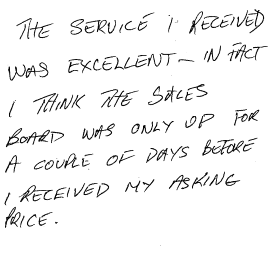 THE SERVICE I RECEIVED
WAS EXCELLENT - IN FACT
I THINK THE SALES
BOARD WAS ONLY UP FOR
A COUPLE OF DAYS BEFORE
I RECEIVED MY ASKING
PRICE.